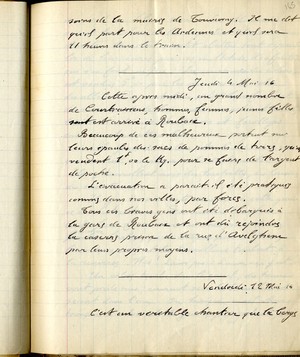 de la mairie de Tourcoing. Il me dit
qu'il part pour les Ardennes et qu'il sera
11 heures dans le train.
Jeudi Mai 16
Cette après midi, un grand nombre
de hommes, femmes, jeunes filles
sont est arrivé à Roubaix.
Beaucoup de ces malheureux portent sur
leurs épaules des sacs de pommes de terre,
vendent le Kg. pour se faire de l'argent
de poche.
L'évacuation a paraît-il été pratiquée
comme dans nos villes, par force.
Tous ces braves gens ont été débarqués à
la gare de Roubaix et ont dû rejoindre
la caserne prison de la rue d'Avelghem
par leurs propres moyens.
Vendredi, 12 Mai 16
C'est un véritable chantier que la